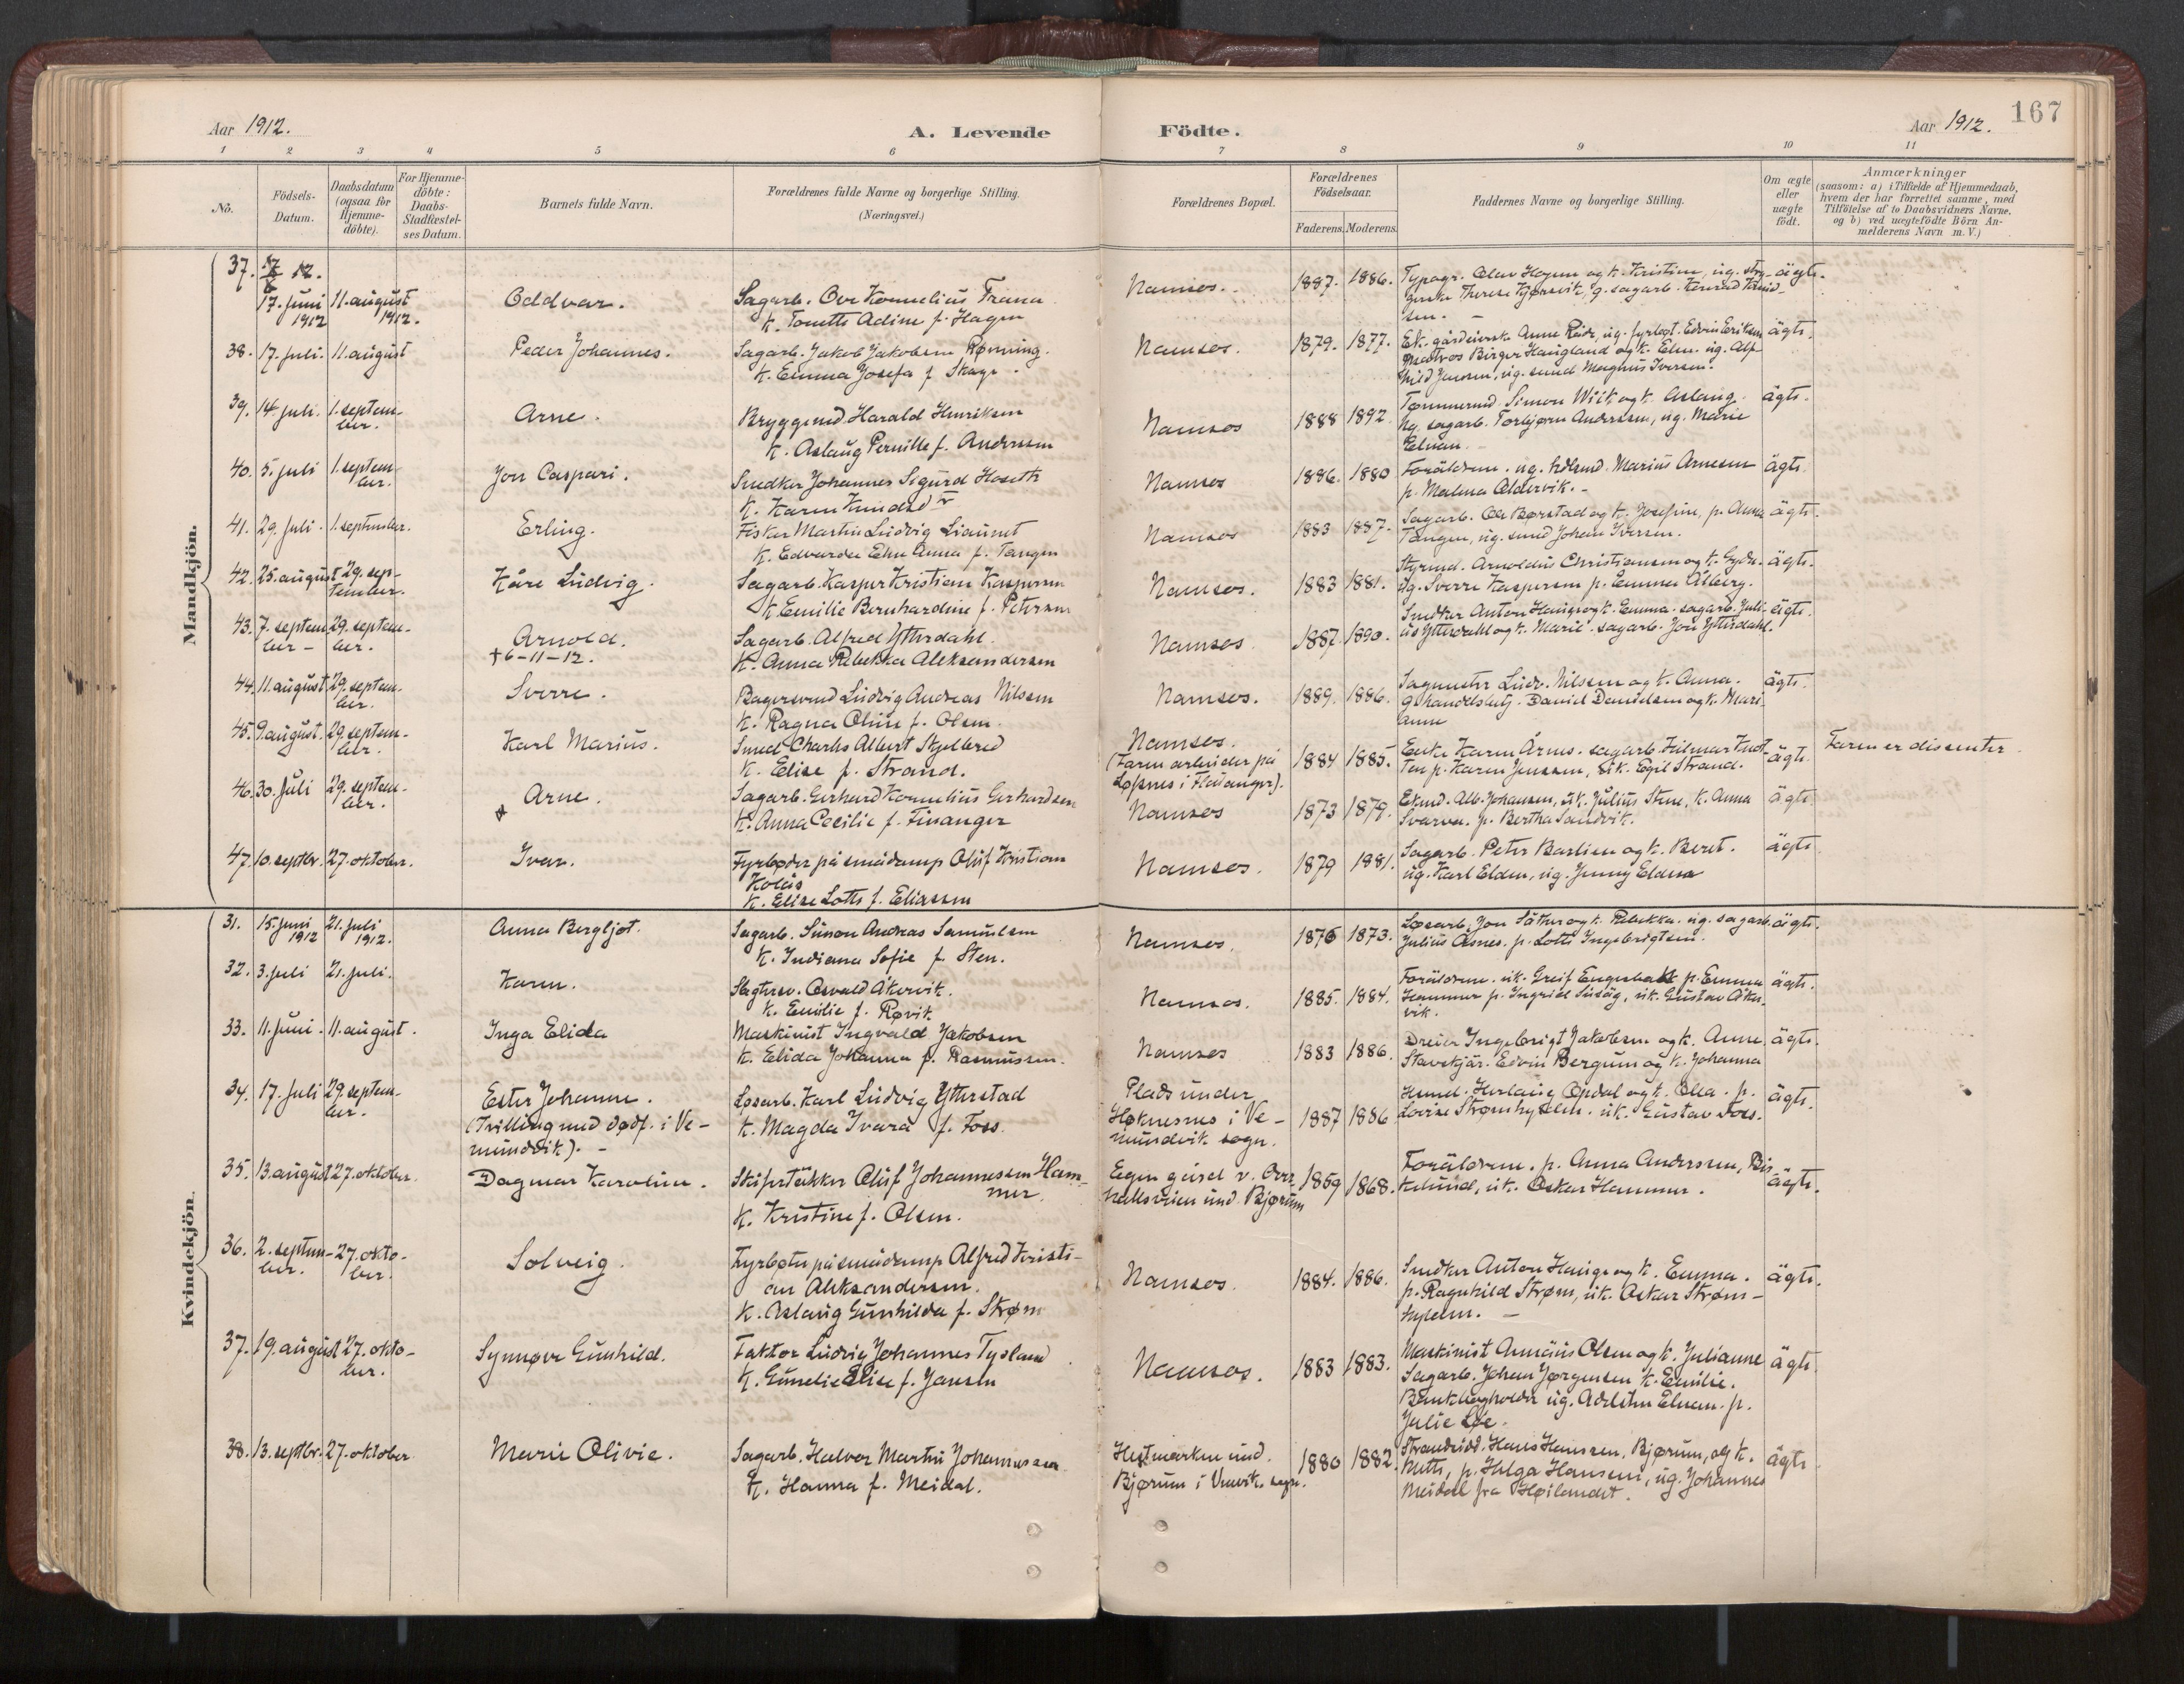 Aar 1912.
A. Levende
Födte.
Aar 1912.
167
1 2 3 4 5 6 7 8 9 10 11
No.
Födsels-
Datum.
Daabsdatum
(ogsaa for
Hjemme-
döbte).
For Hjemme-
döbte:
Daabs-
Stadfæstel-
ses Datum.
Barnets fulde Navn.
Forældrenes fulde Navne og borgerlige Stilling.
(Næringsvei.)
Forældrenes Bopæl.
Forældrenes
Födselsaar.
Faderens. Moderens.
Faddernes Navne og borgerlige Stilling.
Om ægte
eller
uægte
födt.
Anmærkninger
(saasom: a) i Tilfælde af Hjemmedaab,
hvem der har forrettet samme, med
Tilföielse af to Daabsvidners Navne.
og b) ved uægtefödte Börn An-
melderens Navn m. V.)
Mandkjön.
37.
17. juni 1912
11. august 1912.
Oddvar.
Sagarb. Ove Kornelius Frana
k. Tonette Adine f. Hagen
Namsos.
1887. 1886.
Typogr. Olav Hagen og k. Kristine, ug. sty-
gerske Therese Kjørsvik, g. sagarb. Konrad Knud-
sen. -
ägte.
38. 17. juli. 11. august
Peder Johannes.
Sagarb. Jakob Jakobsen Rønning.
k. Emma Josefa f. Skage.
Namsos.
1879. 1877.
Ek. gårdeierske Anne Reide, ug. fyrbøt. Edvin Eriksen
Matros Birger Haugland og k. Elen. ug. Alf-
hild Jensen, ug. smed Magnus Iversen.
ägte.
39. 14. juli. 1. septem-
ber.
Arne.
Bryggemd. Harald Henriksen
k. Aslaug Pernille f. Andersen
Namsos
1888 1892
Tømmermd. Simon Wiik og k. Aslaug.
Ug. sagarb. Torbjørn Anderssen, ug. Marie
Elnan. -
ägte.
40. 5. juli 1. septem-
ber.
Jon Caspari.
Snedker Johannes Sigurd Hoseth
k. Karen Knudsdtr
Namsos
1886. 1880
Foräldrene. ug. hdlsmd. Marius Arnesen
p. Malena Aldervik. -
ägte.
41. 29. juli. 1. september.
Erling.
Fisker Martin Ludvig Liaunet
k. Edvarda Elen Anna f. Tangen
Namsos
1883 1887.
Sagarb. Ole Børstad og k. Josefine, p. Anna
Tangen, ug. smed Johan Iversen.
ägte.
42. 25. august 29. sep-
tember.
Kåre Ludvig.
Sagarb. Kasper Kristian Kaspersen
k. Emilie Bernhardine f. Petersen
Namsos.
1883 1881.
Styrmd. Arnoldus Christiansen og k. Gyda.
Ug. Sverre Kaspersen p. Emma Alberg.
ägte.
43. 7. septem-
ber - 29. septem-
ber.
Arnold.
† 6-11-12.
Sagarb. Alfred Ytterdahl.
k. Anna Rebekka Aleksandersen
Namsos.
1887. 1890.
Snedker Anton Hauge og k. Emma. sagarb. Juli-
us Ytterdahl og k. Marie. sagarb. Jon Ytterdahl.
ägte.
44. 11. august 29. septem-
ber.
Sverre.
Bagersvend Ludvig Andreas Nilssen
k. Ragna Oline f. Olsen.
Namsos.
1889. 1886.
Sagmester Ludv. Nilssen og k. Anna.
g handelsbetj. Daniel Danielsen og k. Mari-
anne
ägte.
45. 9. august. 29. septem-
ber.
Karl Marius.
Smed Charles Albert Skjelbred
k. Elise f. Strand.
Namsos.
(Faren arbeider på
Løfsnes i Flatanger).
1884 1885.
Enke Karen Årnes. sagarb. Hilmar Knot-
ten p. Karen Jenssen, uk. Egil Strand.
ägte.
Faren er dissenter.
46. 30. juli 29. septem-
ber.
Arne.
Sagarb. Gerhard Kornelius Gerhardsen
k. Anna Cecilie f. Finanger
Namsos
1873 1879.
Ekmd. Alb. Johansen, uk. Julius Stene, k. Anna
Svarva. p. Bertha Sandvik.
ägte.
47. 10. septbr. 27. oktober.
Ivar.
Fyrbøder på smådamp Oluf Kristian
Kolås
k. Elise Lotte f. Eliassen
Namsos.
1879 1881.
Sagarb. Peter Barlien og k. Beret.
ug. Karl Elden, ug. Jenny Elden
ägte.
Kvindekjön.
31. 15. juni 1912 21. juli 1912.
Anna Bergljot.
Sagarb. Simon Andreas Samulsen
k. Indiana Sofie f. Sten.
Namsos.
1876 1873.
Løsarb. Jon Säther og k. Rebekka. ug. sagarb.
Julius Asnes. p. Lotte Ingebrigtsen.
ägte.
32. 3. juli 21. juli.
Karen.
Slagtersv. Osvald Åkervik.
k. Emilie f. Røvik
Namsos.
1885. 1884.
Foräldrene. uk. Greif Engesbakk p. Emma
Hammer p. Ingrid Susäg, uk. Gustav Åker-
vik.
ägte.
33. 11. juni. 11. august.
Inga Elida
Maskinist Ingvald Jakobsen
k. Elida Johanna f. Rasmussen.
Namsos
1883 1886.
Dreier Ingebrigt Jakobsen og k. Anne
Stavskjär. Edvin Bergum og k. Johanna
ägte.
34. 17. juli 29. septem-
ber.
Ester Johanne.
(Tvilling med dødf. i Ve-
mundvik). -
Løsarb. Karl Ludvig Ytterstad
k. Magda Ivara f. Foss.
Plads under
Høknesnes i Ve-
mundvik sogn.
1887 1886
Hsmd. Herlaug Opdal og k. Olla. p.
Lovise Strømhylden. uk. Gustav Foss.
ägte.
35. 13. august 27. oktober.
Dagmar Karoline.
Skifertäkker Oluf Johannessen Ham-
mer.
k. Kristine f. Olsen.
Egen gård v. Over-
hallsveien und. Bjørum
1859 1868.
Foräldrene. p. Anna Andersen, Bis
kelund, uk. Oskar Hammer.
ägte.
36. 2. septem-
ber. 27. okto-
ber.
Solveig.
Fyrbøter på smådamp Alfred Kristi-
an Aleksandersen.
k. Aslaug Gunhilda f. Strøm
Namsos.
1884. 1886.
Snedker Anton Hauge og k. Emma.
p. Ragnhild Strøm, uk. Oskar Strøm-
hylden. -
ägte.
37. 19. august 27. okto-
ber.
Synnøve Gunhild.
Faktor Ludvig Johannes Tysland
k. Gunelie Elise f. Jansen
Namsos.
1883 1883.
Maskinist Annäus Olsen og k. Julianne
Sagarb. Johan Jørgensen k. Emilie.
Bankbogholder ug. Adelsten Elnan. p.
Julie Løe.
ägte.
38. 13. septbr. 27. oktober
Marie Olivie.
Sagarb. Halvor Martin Johannessen
k. Hanna f. Meidal.
Hestmarken und.
Bjørum i Vemvik. sogn.
1880 1882.
Strandsidd. Hans Hanssen, Bjørum, og k.
Mette, p. Helga Hansen, ug. Johannes
Meidal fra Høilandet.
ägte